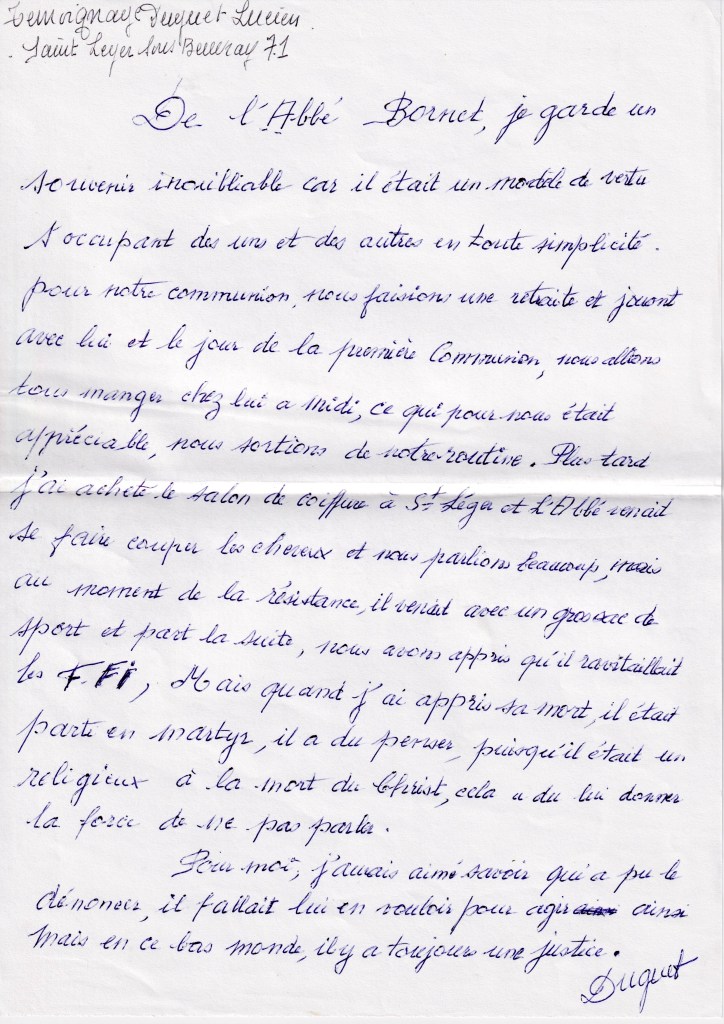 Temoignage Duguet Lucien.
Saint Leger sous Beuvray 71
De l'Abbé Bornet, je garde un
souvenir inoubliable car il était un modèle de vertu
s'occupant des uns et des autres en toute simplicité.
pour notre communion, nous faisions une retraite et jouont
avec lui et le jour de la première Communion, nous allions
tous manger chez lui a midi, ce qui pour nous était
appréciable, nous sortions de notre routine. Plus tard
j'ai acheté le salon de coiffure à St Léger et L'Abbé venait
se faire couper les cheveux et nous parlions beaucoup, mais
au moment de la résistance, il venait avec un gros sac de
sport et part la suite, nous avons appris qu'il ravitaillait
les F.Fi, Mais quand j'ai appris sa mort, il était
parti en martyr, il a du penser, puisqu'il était un
religieux à la mort du Christ, cela a du lui donner
la force de ne pas parler.
Pour moi, j'aurais aimé savoir qui a pu le
dénoncer, il fallait lui en vouloir pour agir ainsi
Mais en ce bas monde, il y a toujours une justice.
Duguet